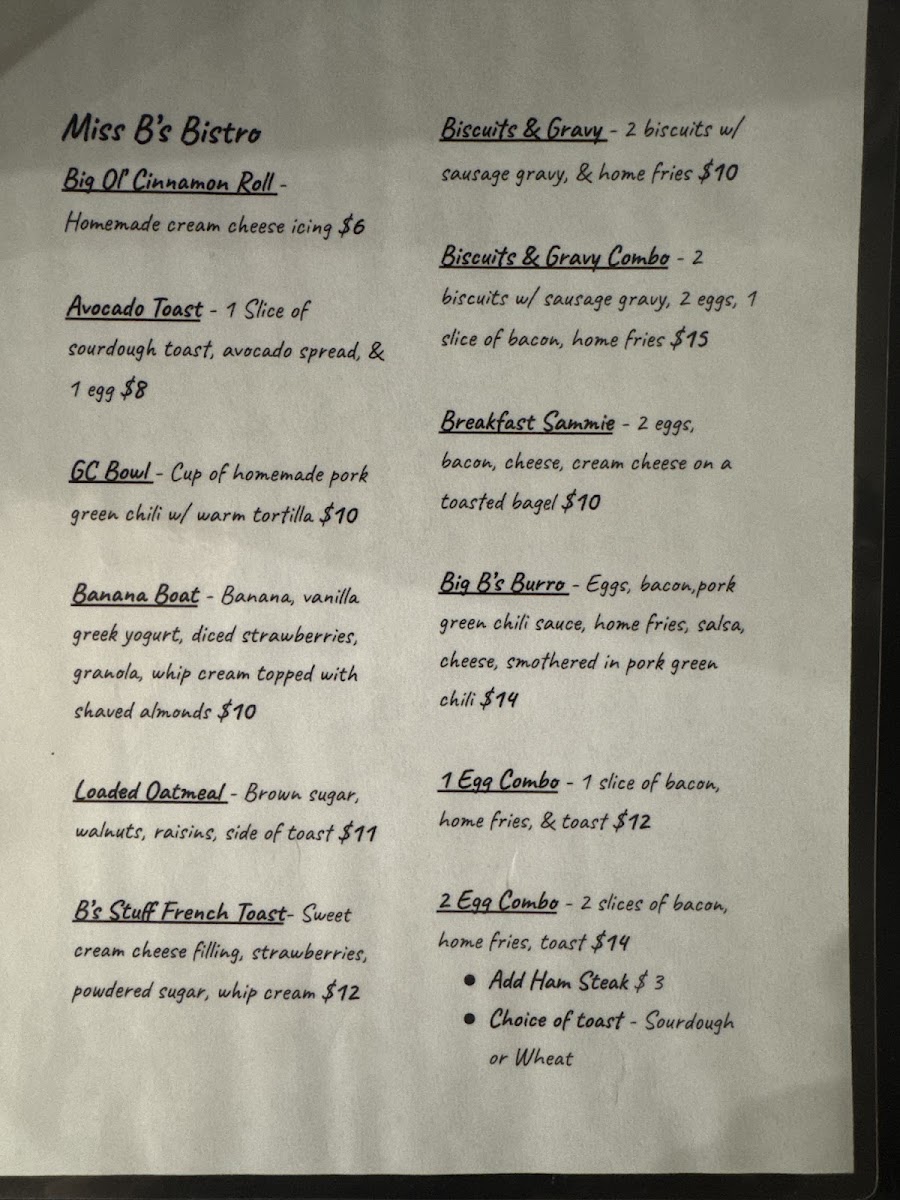 Miss B's Bistro
Big Ol' Cinnamon Roll -
Homemade cream cheese icing $6
Avocado Toast - 1 Slice of
sourdough toast, avocado spread, &
1 egg $8
GC Bowl - Cup of homemade pork
green chili w/ warm tortilla $10
Banana Boat - Banana, vanilla
greek yogurt, diced strawberries,
granola, whip cream topped with
shaved almonds $10
Loaded Oatmeal - Brown sugar,
walnuts, raisins, side of toast $11
B's Stuff French Toast- Sweet
cream cheese filling, strawberries,
powdered sugar, whip cream $12
Biscuits & Gravy - 2 biscuits w/
sausage gravy, & home fries $10
Biscuits & Gravy Combo - 2
biscuits w/ sausage gravy, 2 eggs, 1
slice of bacon, home fries $15
Breakfast Sammie - 2 eggs,
bacon, cheese, cream cheese on a
toasted bagel $10
Big B's Burro - Eggs, bacon,pork
green chili sauce, home fries, salsa,
cheese, smothered in pork green
chili $14
1 Egg Combo - 1 slice of bacon,
home fries, & toast $12
2 Egg Combo - 2 slices of bacon,
home fries, toast $14
• Add Ham Steak $ 3
• Choice of toast - Sourdough
or Wheat